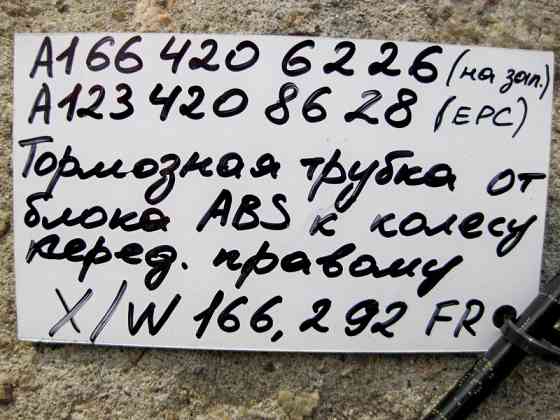 А166 420 6226 (на зап.)
А123 420 8628 (EPC)
Тормозная трубка от
блока ABS к колесу
перед. правому
X/W 166, 292 FR